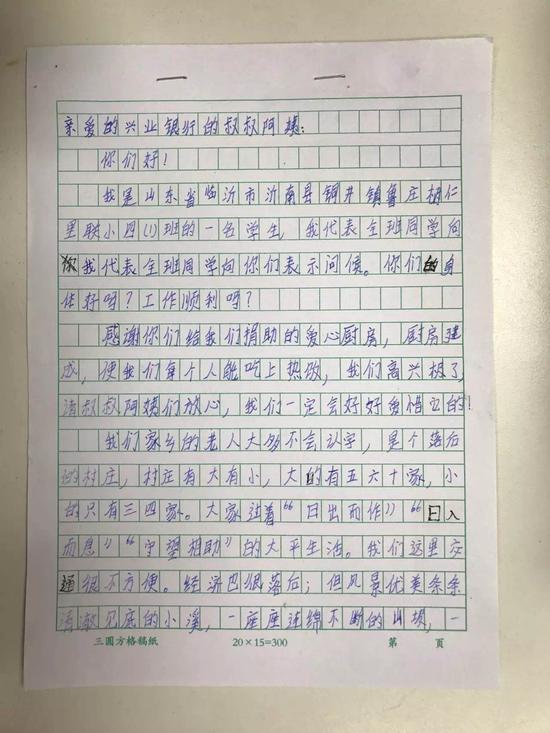 亲爱的兴业银行的叔叔阿姨：
你们好！
我是山东省临沂市沂南县铜井镇鲁庄柄仁
里联小四(1)班的一名学生，我代表全班同学向
你我代表全班同学向你们表示问候。你们的身
体好吗？工作顺利吗？
感谢你们给我们捐助的爱心厨房，厨房建
成，使我们每个人能吃上热饭，我们高兴极了，
请叔叔阿姨们放心，我们一定会好好爱惜它的！
我们家乡的老人大多不会认字，是个落后
的村庄，村庄有大有小，大的有五六十家，小
的只有三四家。大家过着“日出而作”“日入
而息”“守望相助”的太平生活。我们这里交
通很不方便。经济巴很落后；但风景优美条条
清澈见底的小溪，一座座连绵不断的山坝，一
三圆方格稿纸 20×15=300 第 页